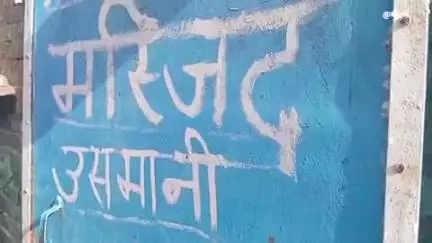 मस्जिद
उसमानी